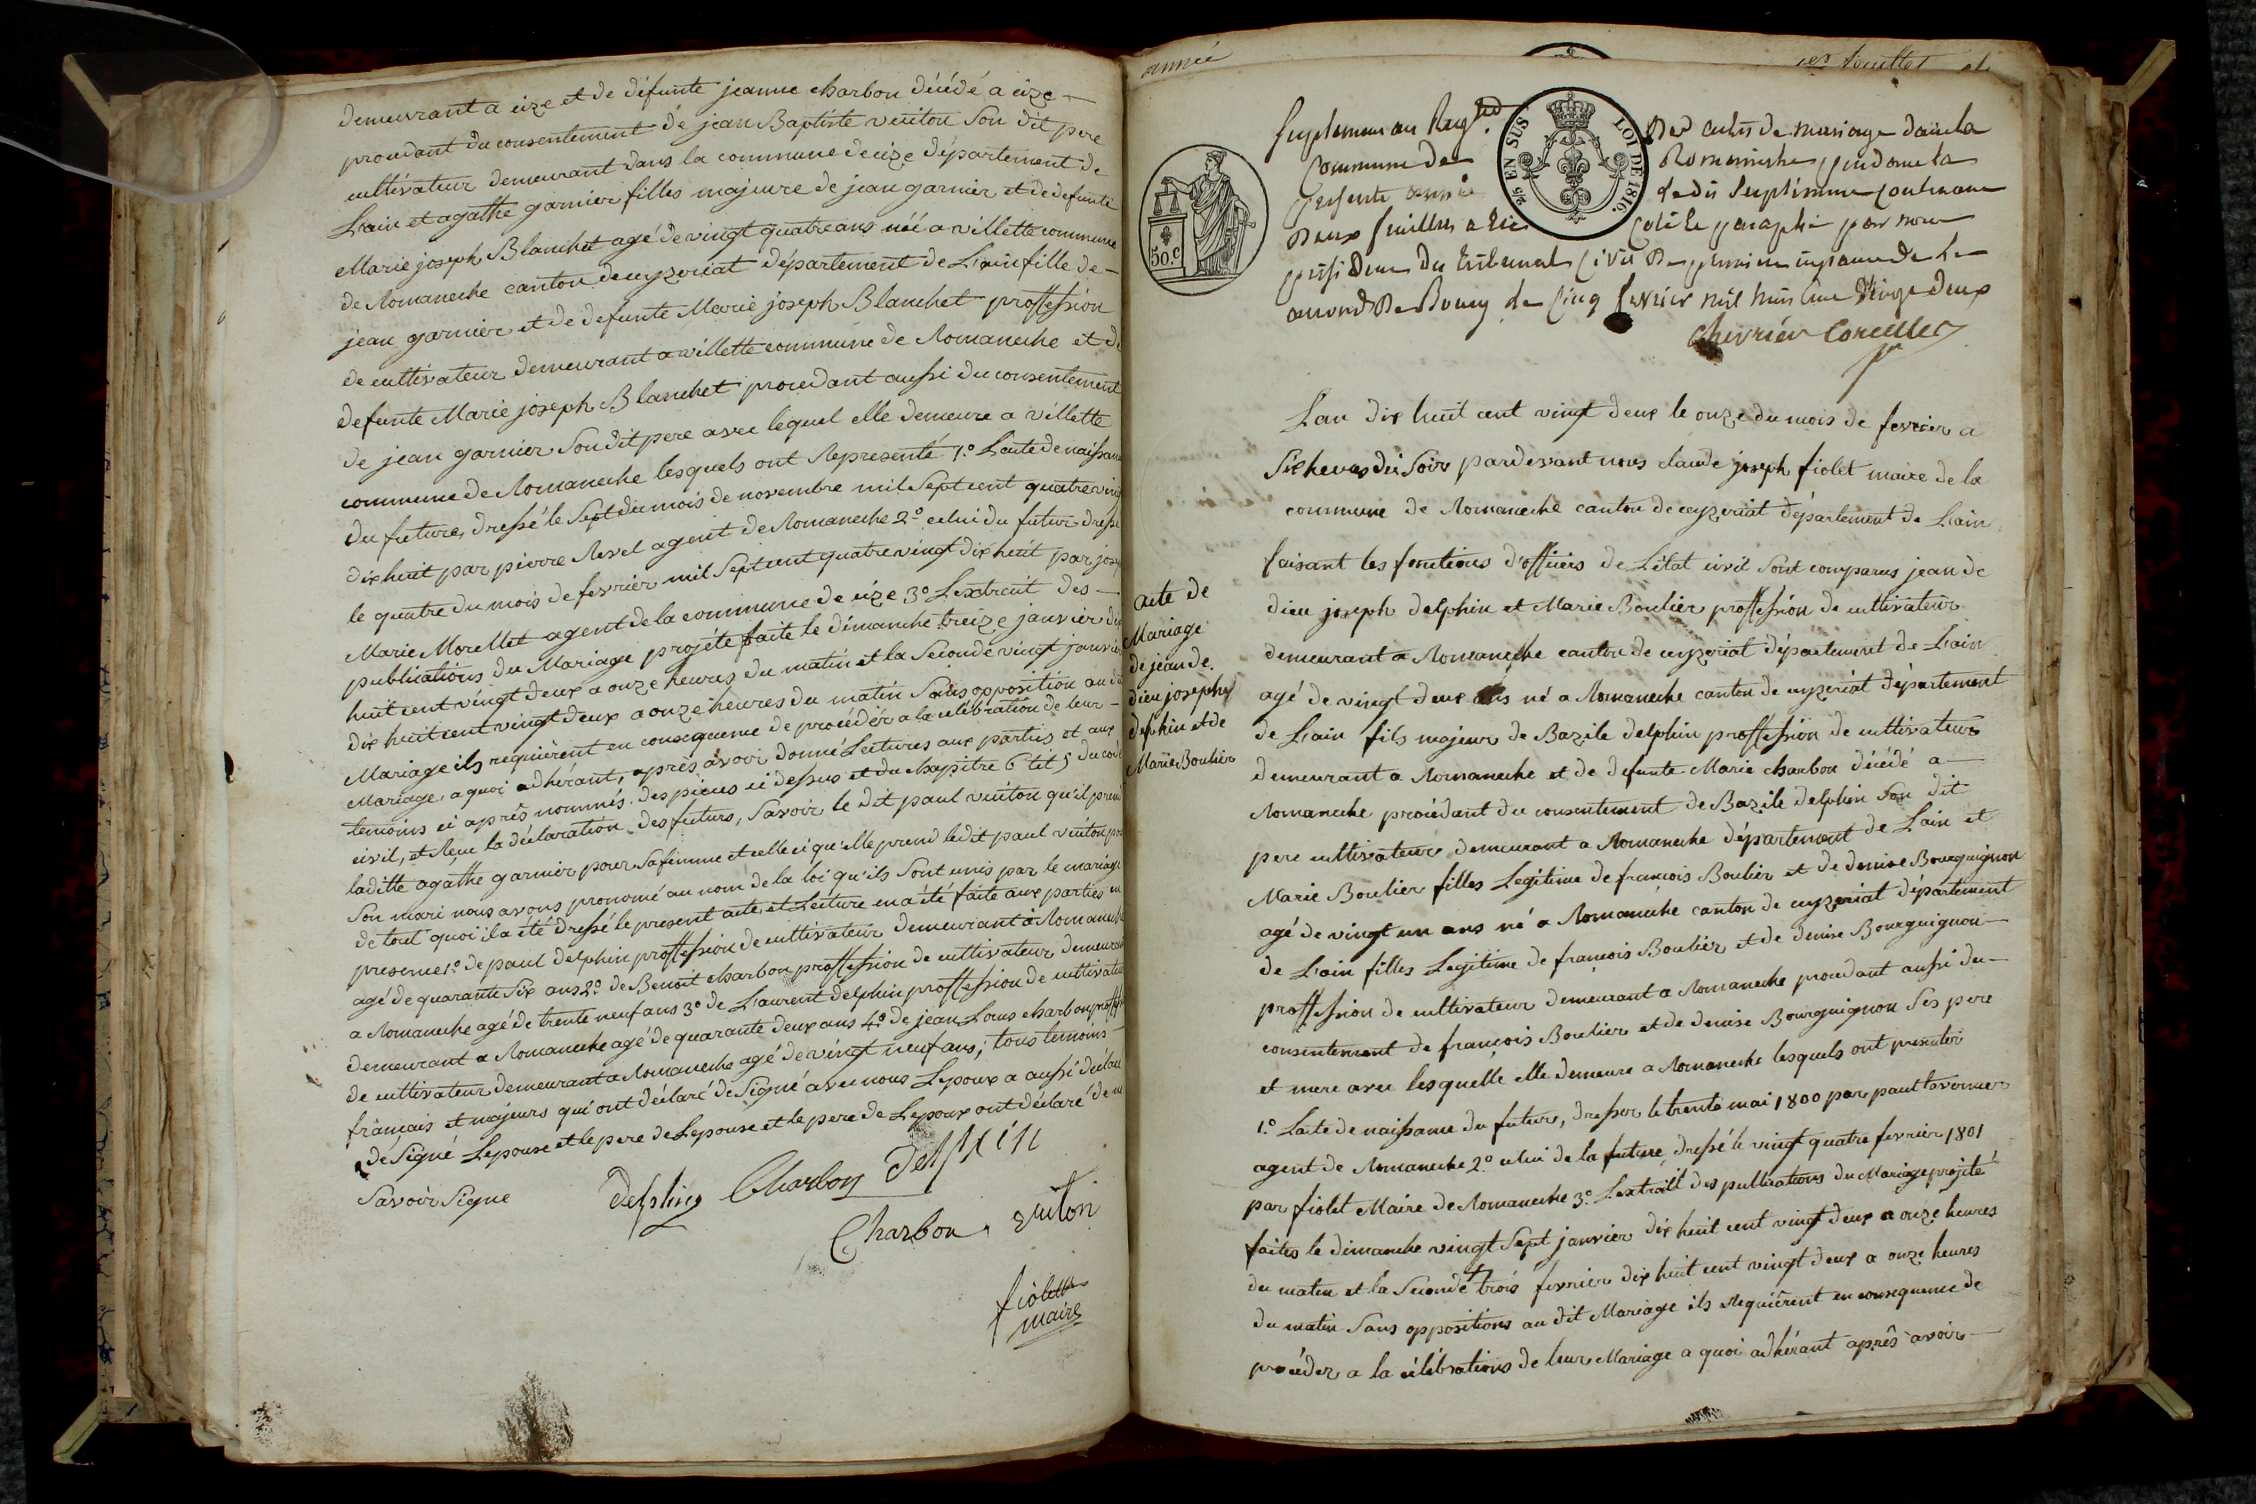 demeurant a cize et de défunte jeanne charbon décédé a cize
procedant du consentement de jean Baptiste vuiton Son dit pere
cultivateur demeurant dans la commune de cize département de
Lain et agathe garnier filles majeure de jean garnier et de defunte
Marie joseph Blanchet agé de vingt quatre ans néé a villette commune
de Romaneche canton de ceyzeriat département de Lain fille de
jean garnier et de defunte Marie joseph Blanchet proffession
de cultivateur demeurant a villette commune de Romaneche et de
defunte Marie joseph Blanchet procedant aussi du consentement
de jean garnier Son dit pere avec lequel elle demeure a villette
commune de Romaneche lesquels ont Representé 1.° Lacte de naissance
du future, dressé le Sept du mois de novembre mil Sept cent quatre vingt
dix huit par pierre Revel agent de Romaneche 2.° celui du futur dressé
le quatre du mois de fevrier mil Sept cent quatre vingt dix huit par joseph
Marie Morellet agent de la commune de cize 3.° Lextrait des
publications du Mariage projété faite le dimanche treize janvier dix
huit cent vingt deux a onze heures du matin et la Seconde vingt janvier
dix huit cent vingt deux a onze heures du matin Sans opposition au dit
Mariage ils requièrent en consequence de procédér a la célébration de leur
Mariage, a quoi adhérant, après avoir donné Lectures aux parties et aux
temoins ci après nommés, des pieces ci dessus et du chapitre 6 tit 5 du code
civil, et Reçu la déclaration des futurs, Savoir le dit paul vuiton qu'il prend
laditte agathe garnier pour Sa femme et celle ci qu'elle prend ledit paul vuiton pour
Son mari nous avons prononcé au nom de la loi qu'ils Sont unis par le mariage
de tout quoi il a été dressé le present acte et Lecture en a été faite aux parties en
presence 1.° de paul delphin proffession de cultivateur demeurant a Romaneche
agé de quarante Six ans 2.° de Benoit charbon proffession de cultivateur demeurant
a Romaneche agé de trente neuf ans 3.° de Laurent delphin proffession de cultivateur
demeurant a Romaneche agé de quarante deux ans 4.° de jean Louis charbon proffession
de cultivateur demeurant a Romaneche agé de vingt neuf ans; tous temoins
français et majeurs qui ont déclaré de Signé avec nous Lepoux a aussi déclaré
de Signé Lepouse et le pere de Lepouse et le pere de Lepoux ont déclaré de ne
Savoir Signe
delphin Charbon delphin
Charbon vuiton
fiolet
maire
année
Suplement au Reg.tre Des actes de mariage dans la
Commune de Romaneche pendant la
presente année
Deux feuillets
president du tribunal Civil De premiere instance de L
arrond. De Bourg le Cinq fevrier mil huit Cent Vingt deux
Chevrier Corcelles
50.c
25 EN SUS
LOI DE 1816.
acte de
Mariage
de jean de
dieu joseph
delphin et de
Marie Boulier
Lan dix huit cent vingt deux le onze du mois de fevrier a
Six heures du Soir pardevant nous claude joseph fiolet maire de la
commune de Romaneche canton de ceyzeriat département de Lain
faisant les fonctions d'officiers de Létat civil Sont comparus jean de
dieu joseph delphin et Marie Boulier proffession de cultivateur
demeurant a Romaneche canton de ceyzeriat département de Lain
agé de vingt deux ans né a Romaneche canton de ceyzeriat département
de Lain fils majeur de Bazile delphin proffession de cultivateur
demeurant a Romaneche et de defunte Marie charbon décédé a
Romaneche procédant du consentement de Bazile delphin Son dit
pere cultivateur demeurant a Romaneche département de Lain et
Marie Boulier filles Legitime de francois Boulier et de denise Bourguignon
agé de vingt un ans né a Romaneche canton de ceyzeriat département
de Lain filles Legitime de francois Boulier et de denise Bourguignon
proffession de cultivateur demeurant a Romaneche procedant aussi du
consentement de francois Boulier et de denise Bourguignon Ses pere
et mere avec lesquelle elle demeure a Romaneche lesquels ont presenter
1.° Lacte de naissance du future, dresser le trente mai 1800 par paul tavernier
agent de Romaneche 2.° celui de la future, dressé le vingt quatre fevrier 1801
par fiolet Maire de Romaneche 3.° Lextrait des publications du Mariage projété
faites le dimanche vingt Sept janvier dix huit cent vingt deux a onze heures
du matin et la Seconde trois fevrier dix huit cent vingt deux a onze heures
du matin Sans oppositions au dit Mariage ils requièrent en consequence de
procéder a la célébrations de leur Mariage a quoi adhérant après avoir